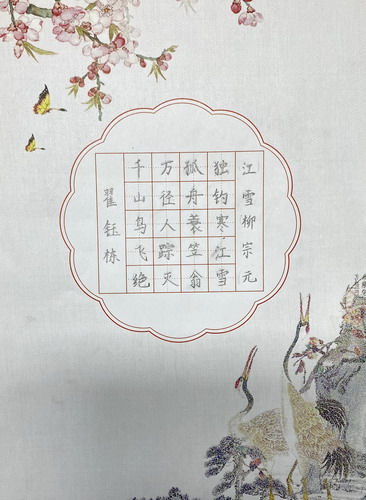 江雪柳宗元
千山鸟飞绝
万径人踪灭
孤舟蓑笠翁
独钓寒江雪
翟钰栋